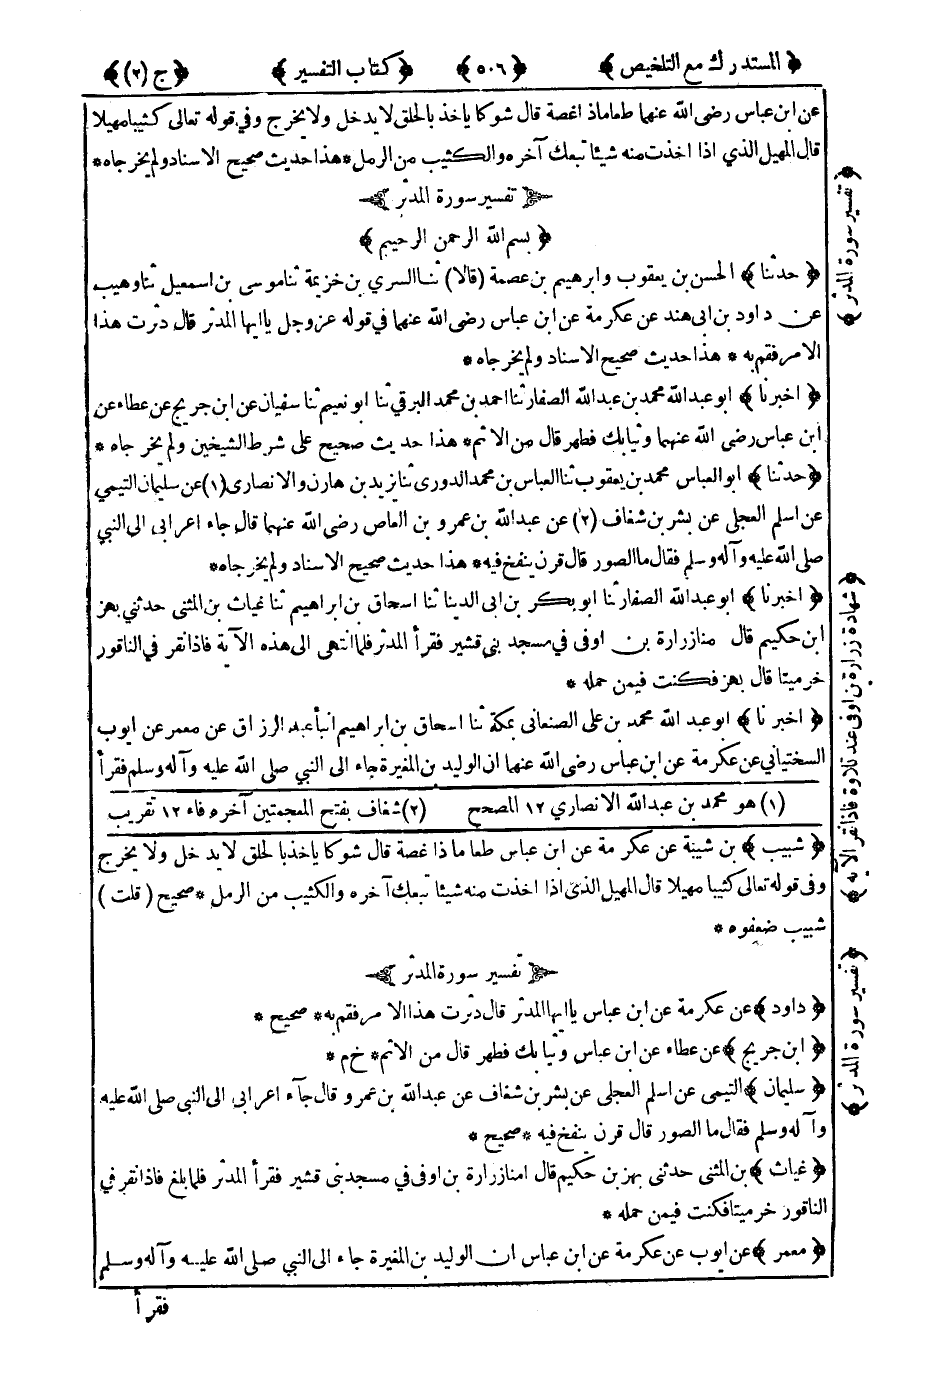 ﴿ المستدرك مع التلخيص ﴾ ﴿ ٥٠٦ ﴾ ﴿ كتاب التفسير ﴾ ﴿ ج (٢) ﴾
عن ابن عباس رضى الله عنهما طعاما ذا غصة قال شوكا ياخذ بالحلق لا يدخل ولا يخرج وفي قوله تعالى كثيبا مهيلا
قال المهيل الذي اذا اخذت منه شيئا تبعك آخره والكثيب من الرمل * هذا حديث صحيح الاسناد ولم يخرجاه *
تفسير سورة المدثر
﴿ بسم الله الرحمن الرحيم ﴾
﴿ حدثنا ﴾ الحسن بن يعقوب وابرهيم بن عصمة (قالا) ثنا السري بن خزيمة ثنا موسى بن اسمعيل ثنا وهيب
عن داود بن ابى هند عن عكرمة عن ابن عباس رضى الله عنهما في قوله عز وجل يا ايها المدثر قال دثرت هذا
الامر فقم به * هذا حديث صحيح الاسناد ولم يخرجاه *
﴿ اخبرنا ﴾ ابو عبد الله محمد بن عبد الله الصفار ثنا احمد بن محمد البرقي ثنا ابو نعيم ثنا سفيان عن ابن جريج عن عطاء عن
ابن عباس رضى الله عنهما وثيابك فطهر قال من الاثم * هذا حديث صحيح على شرط الشيخين ولم يخرجاه *
﴿ حدثنا ﴾ ابو العباس محمد بن يعقوب ثنا العباس بن محمد الدورى ثنا يزيد بن هارن والانصارى (١) عن سليمان التيمي
عن اسلم العجلى عن بشر بن شغاف (٢) عن عبد الله بن عمرو بن العاص رضى الله عنهما قال جاء اعرابى الى النبي
صلى الله عليه وآله وسلم فقال ما الصور قال قرن ينفخ فيه * هذا حديث صحيح الاسناد ولم يخرجاه *
﴿ اخبرنا ﴾ ابو عبد الله الصفار ثنا ابو بكر بن ابى الدينا ثنا اسحاق بن ابراهيم ثنا غياث بن المثنى حدثني بهز
ابن حكيم قال منا زرارة بن اوفى في مسجد بنى قشير فقرأ المدثر فلما انتهى الى هذه الآية فاذا نقر في الناقور
خر ميتا قال بهز فكنت فيمن حمله *
﴿ اخبرنا ﴾ ابو عبد الله محمد بن على الصنعانى بمكة ثنا اسحاق بن ابراهيم انبأ عبد الرزاق عن معمر عن ايوب
السختياني عن عكرمة عن ابن عباس رضى الله عنهما ان الوليد بن المغيرة جاء الى النبي صلى الله عليه وآله وسلم فقرأ
(١) هو محمد بن عبد الله الانصاري ١٢ المصحح (٢) شغاف بفتح المعجمتين آخره فاء ١٢ تقريب
﴿ شبيب ﴾ بن شيبة عن عكرمة عن ابن عباس طعاما ذا غصة قال شوكا ياخذ بالحلق لا يدخل ولا يخرج
وفى قوله تعالى كثيبا مهيلا قال المهيل الذى اذا اخذت منه شيئا تبعك آخره والكثيب من الرمل * صحيح (قلت)
شبيب ضعفوه *
تفسير سورة المدثر
﴿ داود ﴾ عن عكرمة عن ابن عباس يا ايها المدثر قال دثرت هذا الامر فقم به * صحيح *
﴿ ابن جريج ﴾ عن عطاء عن ابن عباس وثيابك فطهر قال من الاثم * خ م *
﴿ سليمان ﴾ التيمى عن اسلم العجلى عن بشر بن شغاف عن عبد الله بن عمرو قال جآء اعرابى الى النبى صلى الله عليه
وآله وسلم فقال ما الصور قال قرن ينفخ فيه * صحيح *
﴿ غياث ﴾ بن المثنى حدثنى بهز بن حكيم قال امنا زرارة بن اوفى في مسجد بنى قشير فقرأ المدثر فلما بلغ فاذا نقر في
الناقور خر ميتا فكنت فيمن حمله *
﴿ معمر ﴾ عن ايوب عن عكرمة عن ابن عباس ان الوليد بن المغيرة جاء الى النبي صلى الله عليه وآله وسلم
فقرأ
﴿ تفسير سورة المدثر ﴾
﴿ شهادة زرارة بن اوفى عند تلاوة فاذا نقر الآية ﴾
﴿ تفسير سورة المدثر ﴾